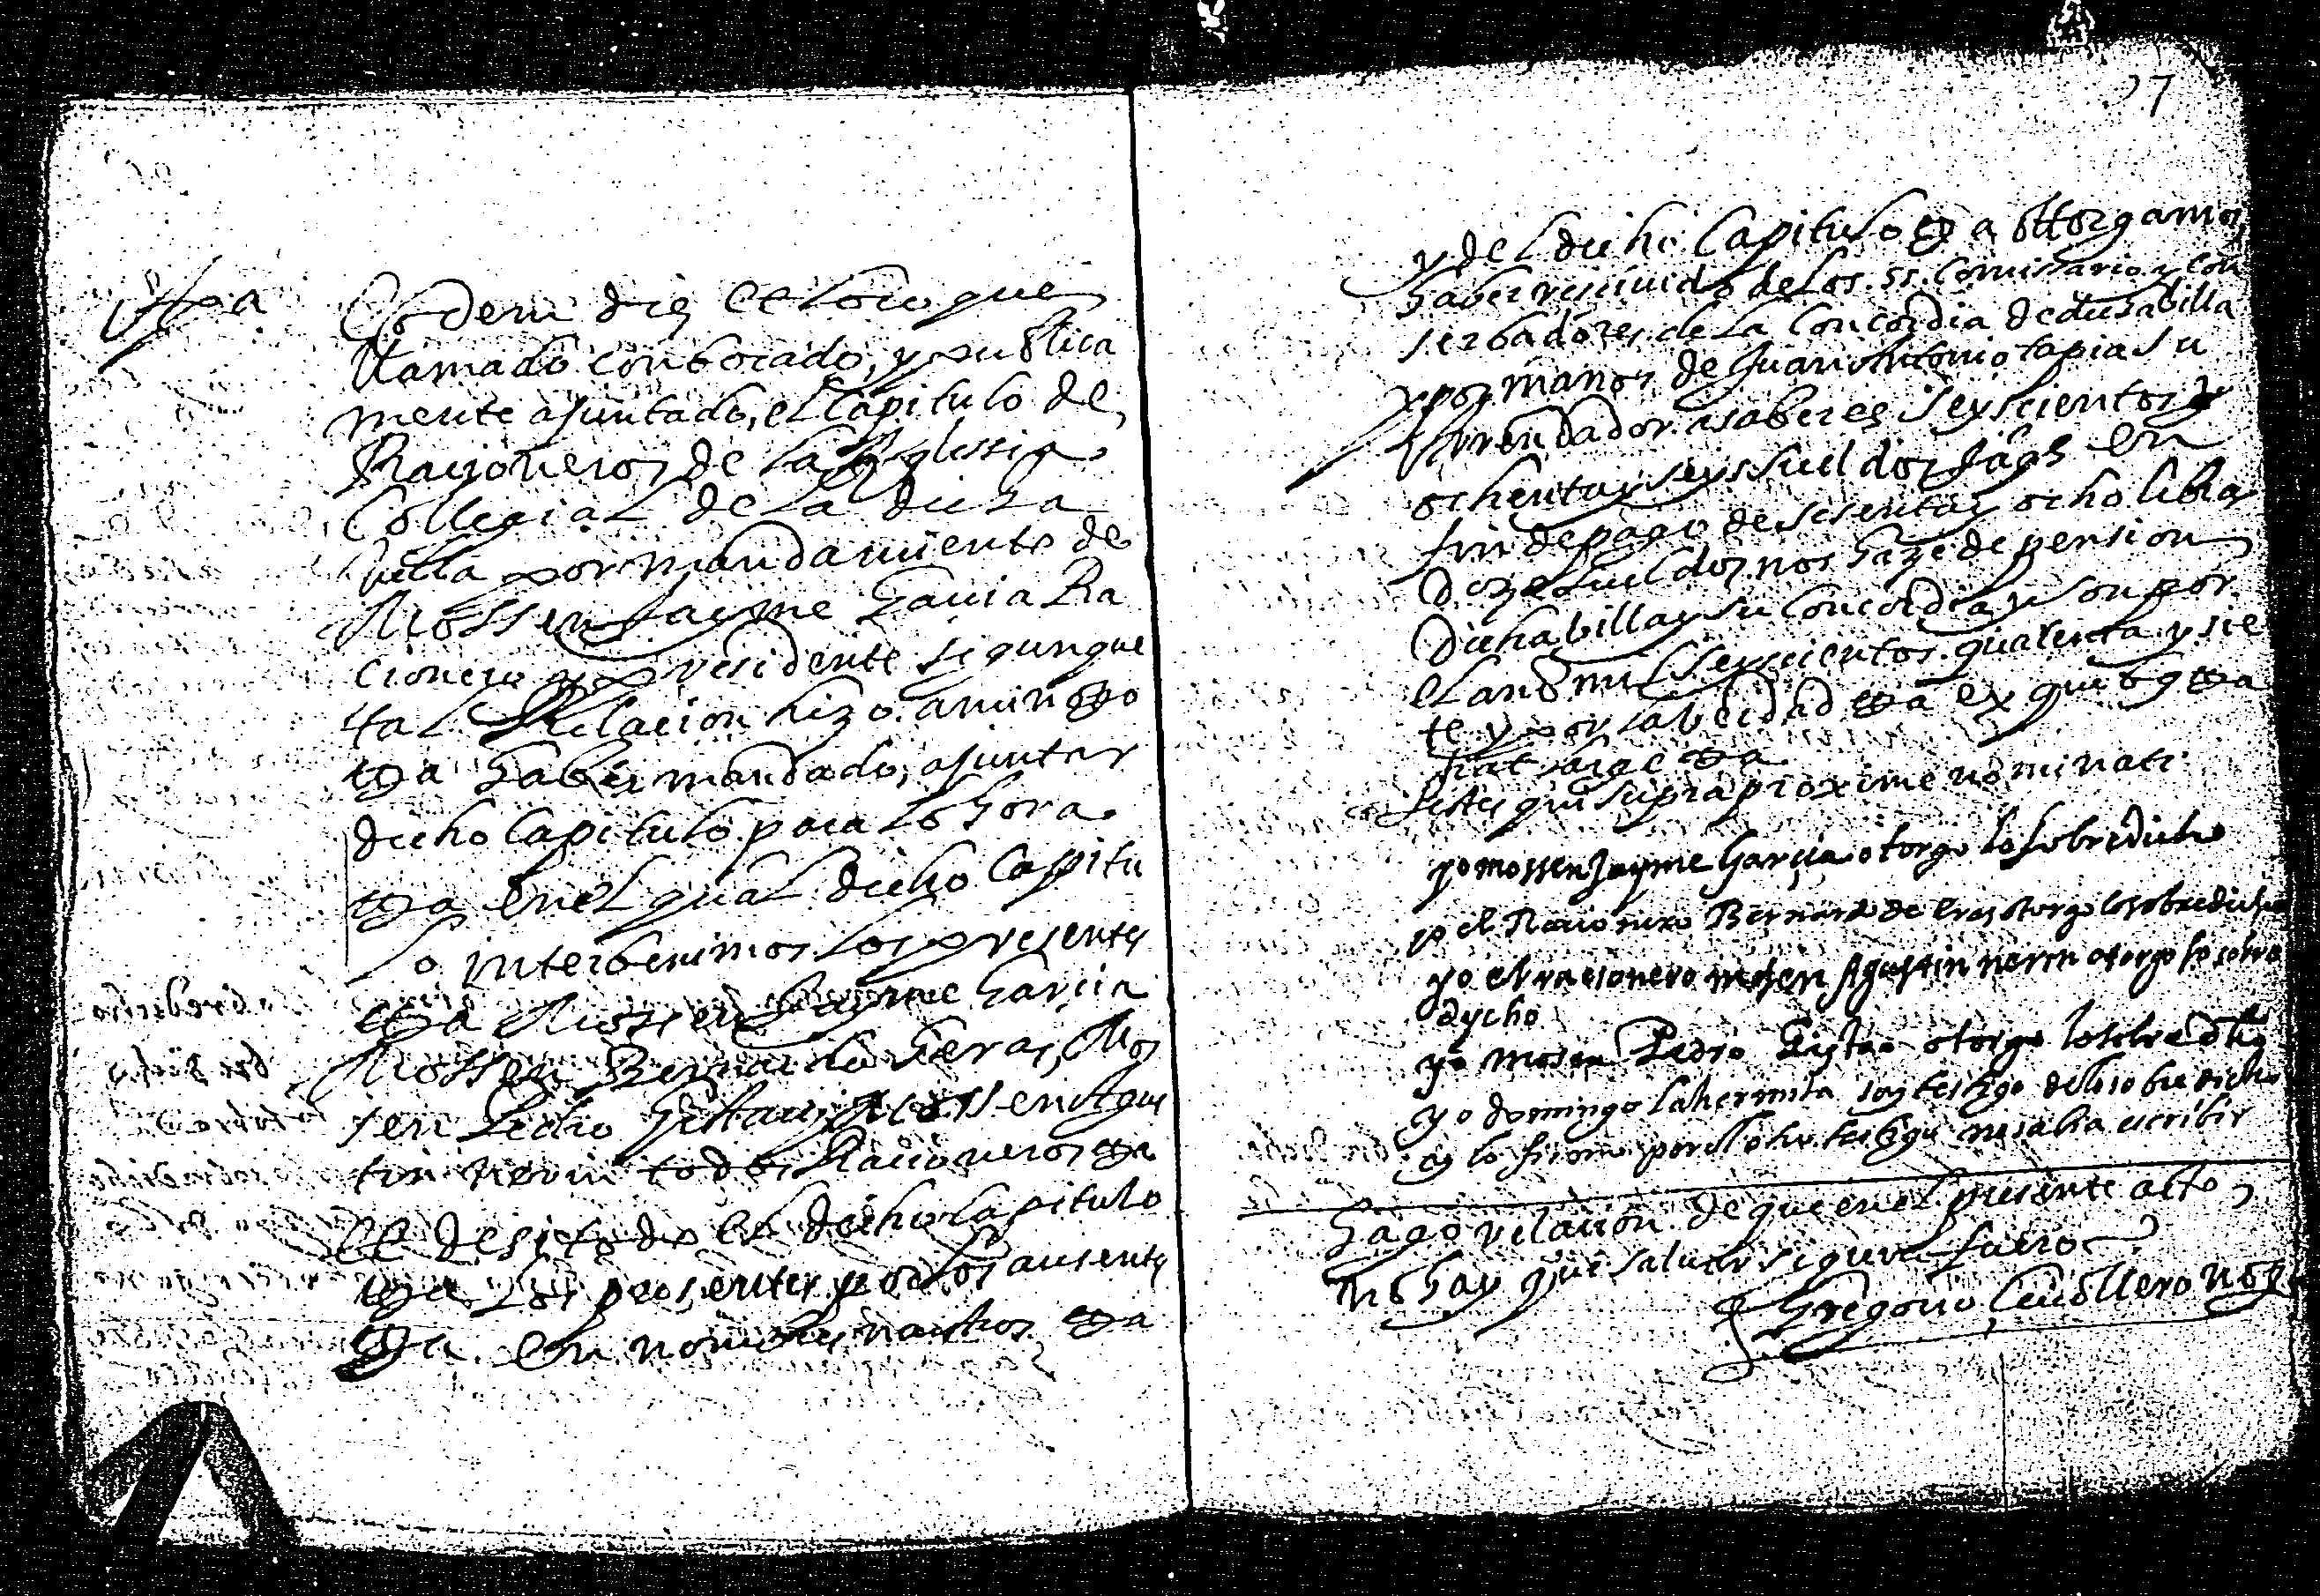 Eodem die et loco que
llamado conbocado, y publica
mente ajuntado, el Capitulo de
Racioneros de la Yglessia
Collegial de la dicha
villa por mandamiento de
Mossen Jayme Garcia Ra
cionero y presidente segun que
tal Relacion hizo a mi nott
etta haber mandado, ajuntar
dicho Capitulo para la hora
etta en el qual dicho Capitu
lo interbenimos los presentes
etta Mossen Jayme Garcia
Mossen Bernardo Heras, Mos
sen Pedro Gistau, Mossen Agus
tin Nerin todos Racioneros etta
et de si todo el dicho Capitulo
etta los presentes por los ausentes
etta en nombres nuestros etta
37
y del dicho Capitulo etta attorgamos
haber recivido de los ss. Comissario y con
serbadores de la Concordia de dicha billa
y por manos de Juan Antonio Tapia su
Arrendador a saber es seyscientos y
ochenta y seys sueldos Jaqs en
fin de pago de sesenta y ocho libras
doze sueldos nos haze de pension
dicha billa y su Concordia y son por
el año mil seyscientos quarenta y sie
te y por la berdad etta ex quibus etta
fiat large etta
Testes qui supra proxime nominati
yo mossen Jayme Garcia otorgo lo sobredicho
yo el Racionero Bernardo de Eras otorgo lo sobredicho
yo el racionero mosen Agustin nerin otorgo lo sobre
dycho
yo mosen Pedro Gistao otorgo lo sobredho
yo domingo lahermita soy testigo de lo sobredicho
y lo firmo por el otro testigo no sabia escribir
Hago relacion de que en el presente acto
no hay que salvar sigun fuero
Gregorio Cavallero notº